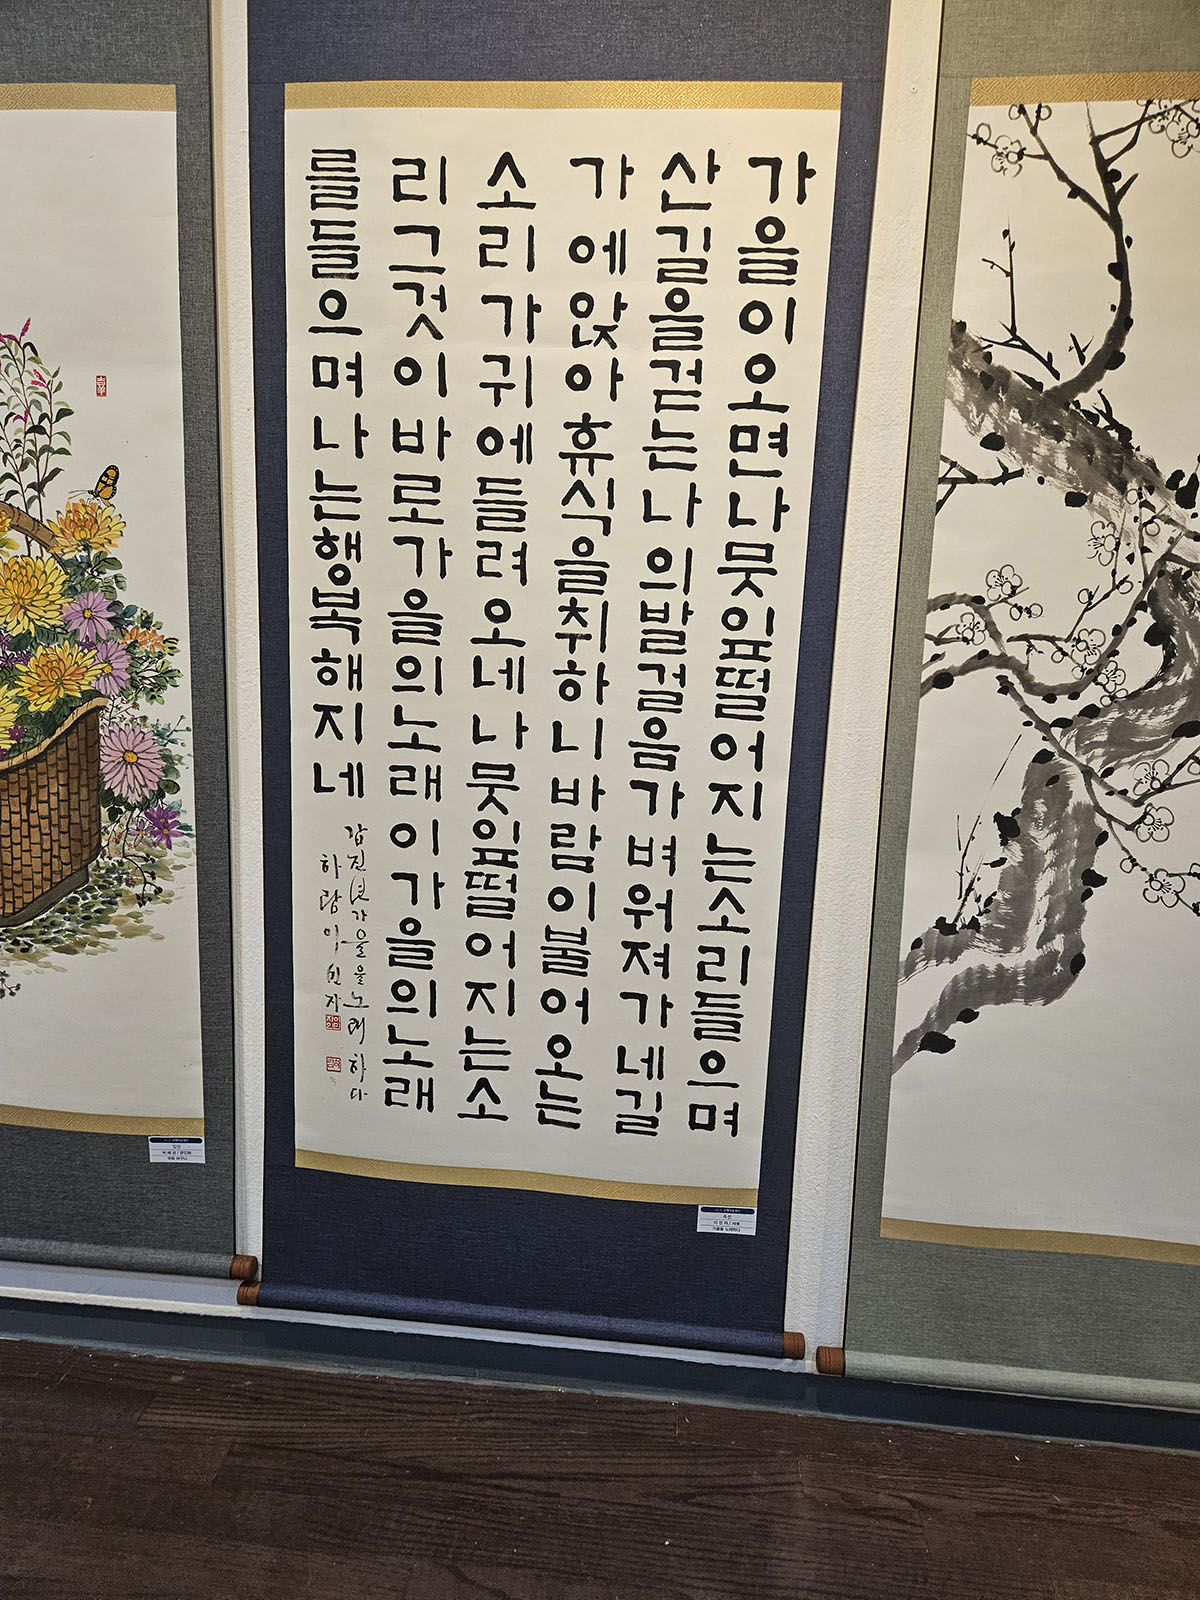 가을이오면나뭇잎떨어지는소리들으며
산길을걷는나의발걸음가벼워져가네길
가에앉아휴식을취하니바람이불어오는
소리가귀에들려오네나뭇잎떨어지는소
리그것이바로가을의노래이가을의노래
를들으며나는행복해지네
갑진년가을을노래하다
하람이민자
가을을 노래하다